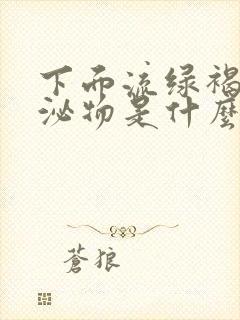 下而流绿褐
泌物是什麼
蒼狼